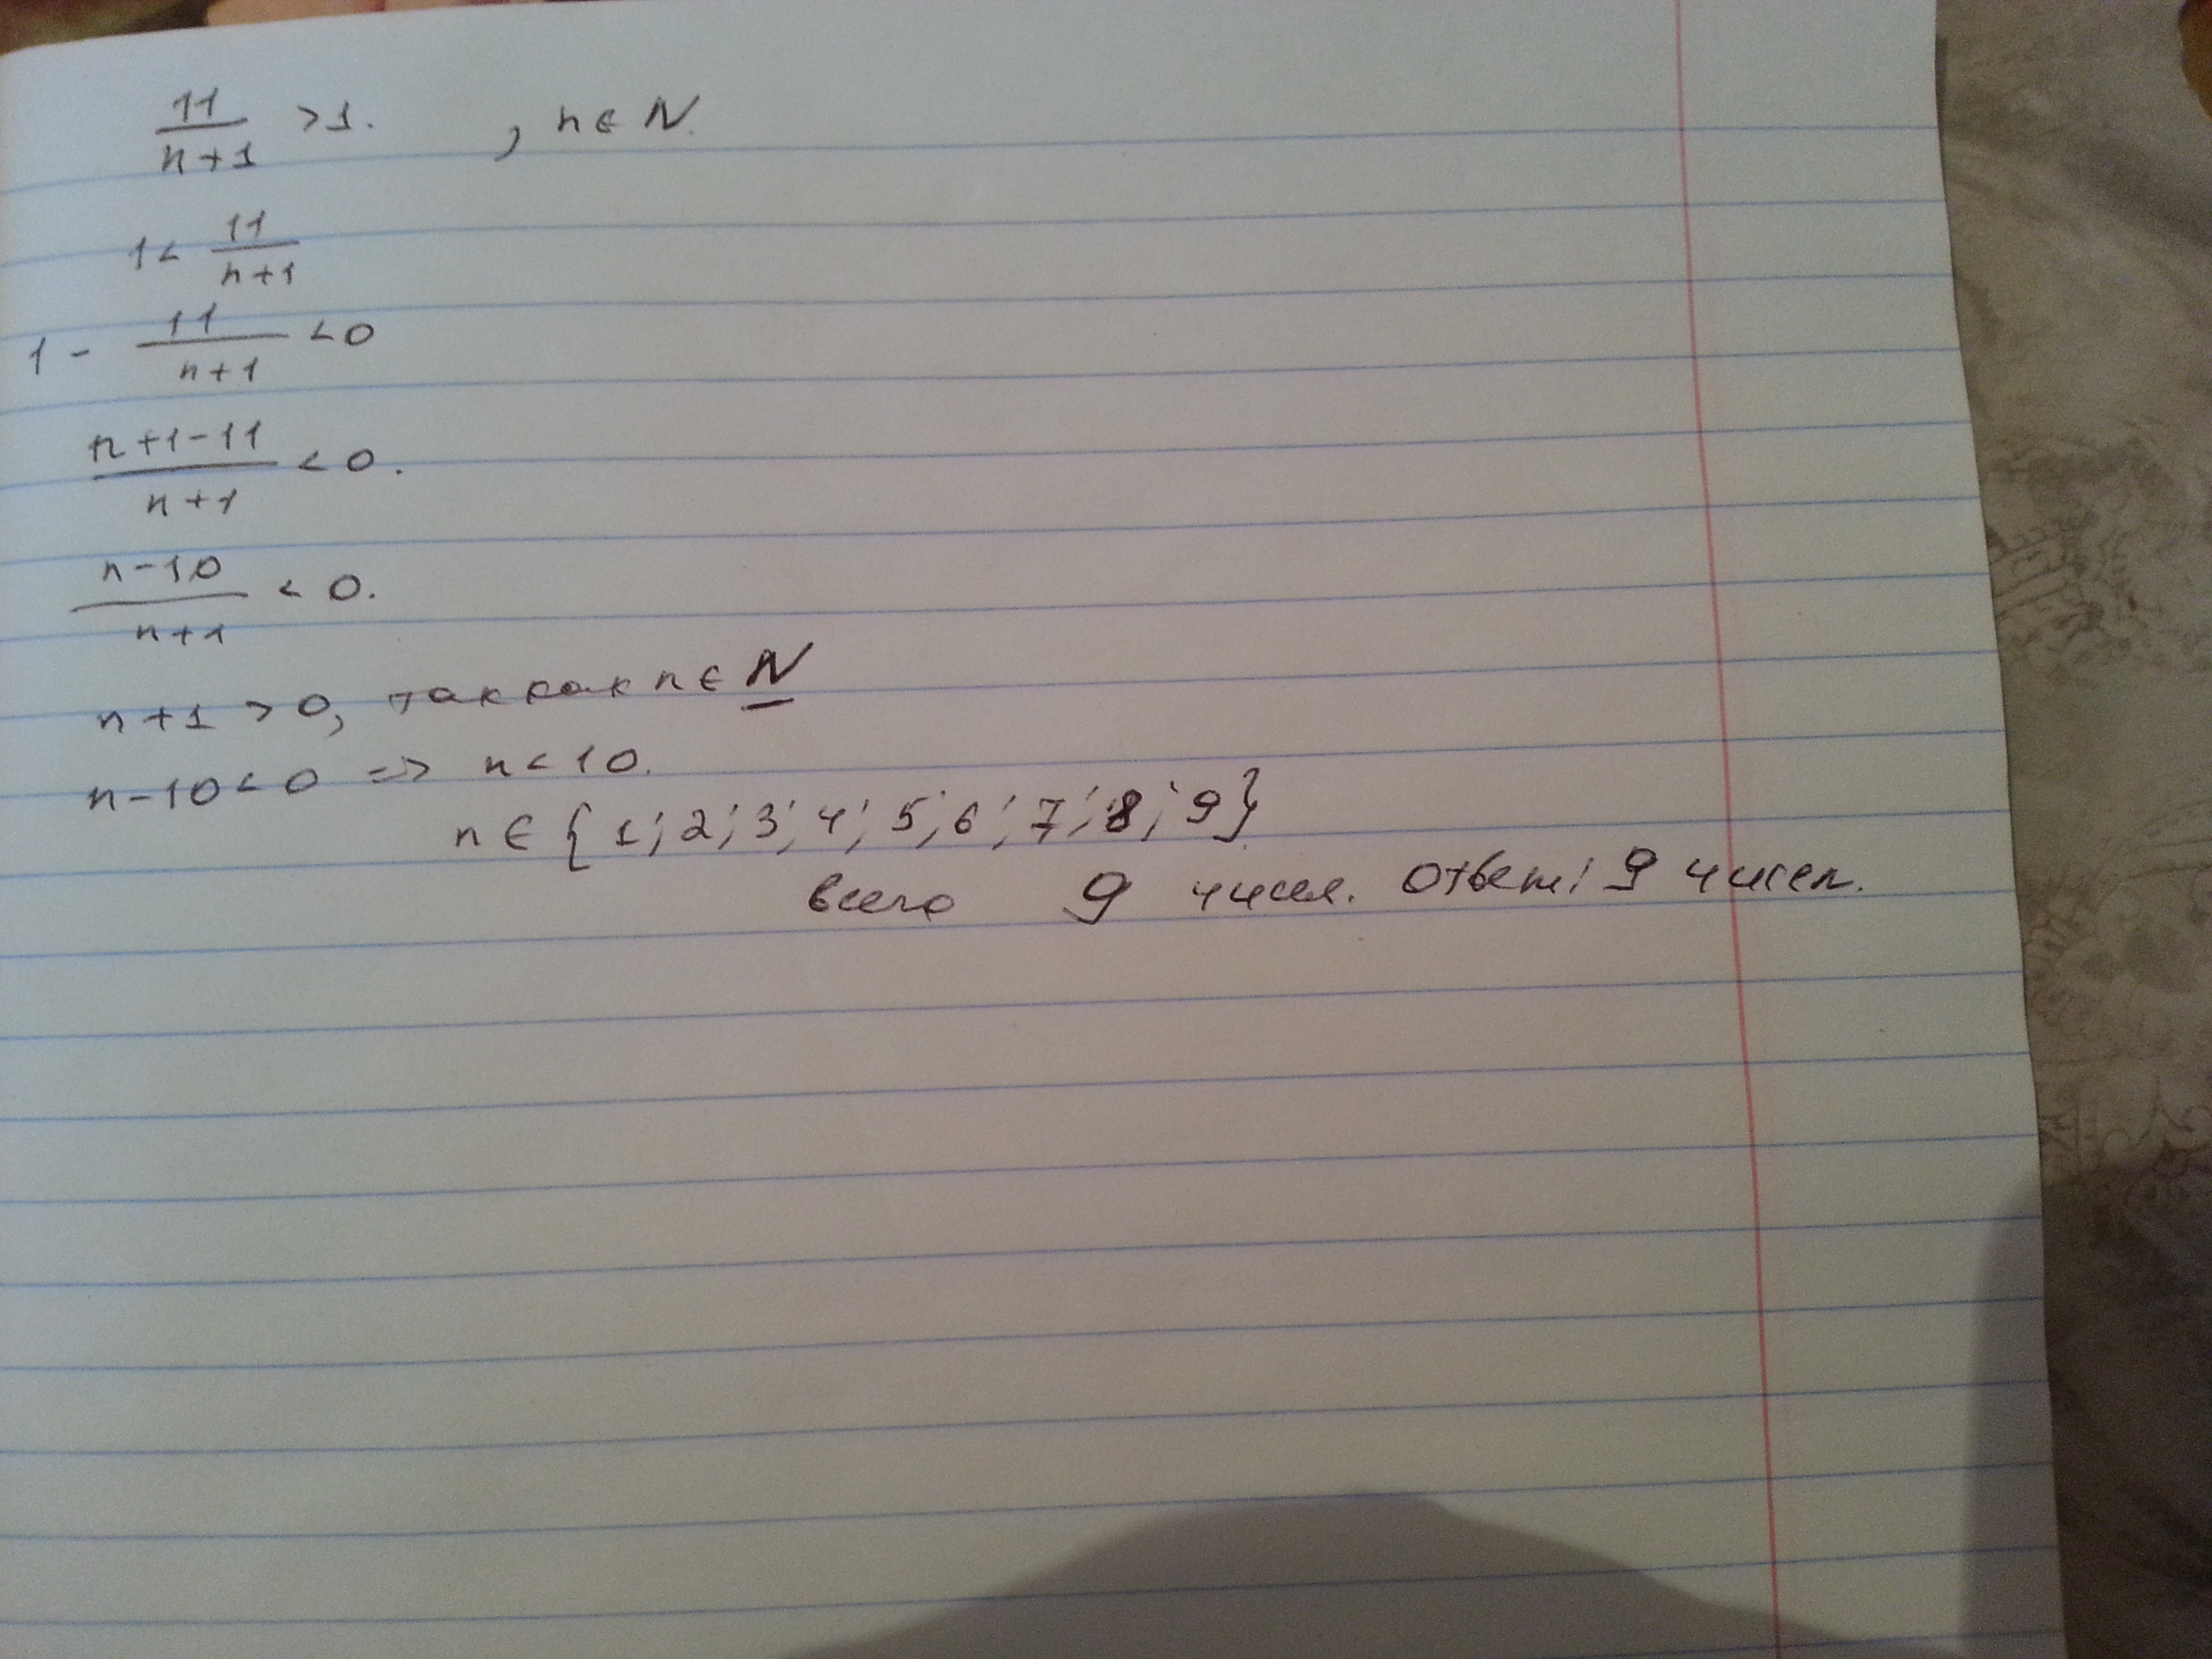 11/(n+1) >1. , n∈N.
1< 11/(n+1)
1 - 11/(n+1) <0
(n+1-11)/(n+1) <0.
(n-10)/(n+1) < 0.
n+1 >0, так как n∈N
n-10<0 => n<10.
n∈{1;2;3;4;5;6;7;8;9}
всего 9 чисел. Ответ: 9 чисел.